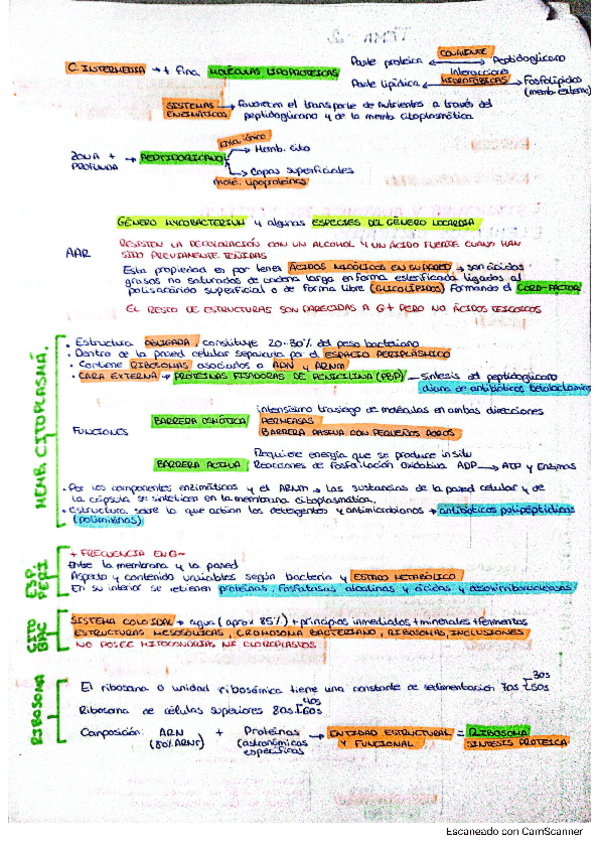 TEMA 2
COVALENTE
C. INTERMEDIA → + fina MOLÉCULAS LIPOPROTEICAS Parte proteica ↔ Peptidoglicano
Interacciones
Parte lipídica ↔ HIDROFÓBICAS → Fosfolípidos
(memb. externa)
SISTEMAS ENZIMÁTICOS → Favorecen el transporte de nutrientes a través del
peptidoglicano y de la memb. citoplasmática
ZONA + PROFUNDA → PEPTIDOGLICANO → Memb. cito
→ Capas superficiales
Molé. lipoproteínas
GÉNERO MYCOBACTERIUM y algunas ESPECIES DEL GÉNERO NOCARDIA
AAR RESISTEN LA DECOLORACIÓN CON UN ALCOHOL Y UN ÁCIDO FUERTE CUANDO HAN
SIDO PREVIAMENTE TEÑIDAS
Esta propiedad es por tener ÁCIDOS MICÓLICOS EN SU PARED → son ácidos
grasos no saturados de cadena larga en forma esterificada ligados al
polisacárido superficial o de forma libre (GLICOLÍPIDOS) formando el CORD-FACTOR
EL RESTO DE ESTRUCTURAS SON PARECIDAS A G+ PERO NO ÁCIDOS TEICOICOS
MEMB. CITOPLASMÁ.
· Estructura OBLIGADA, constituye 20-30% del peso bacteriano
· Dentro de la pared celular separada por el ESPACIO PERIPLÁSMICO
· Contiene RIBOSOMAS asociados a ADN y ARNM
· CARA EXTERNA → PROTEÍNAS FIJADORAS DE PENICILINA (PBP) — Síntesis del peptidoglicano
diana de antibióticos betalactámicos
FUNCIONES
BARRERA OSMÓTICA intensísimo trasiego de moléculas en ambas direcciones
PERMEASAS
BARRERA PASIVA CON PEQUEÑOS POROS
BARRERA ACTIVA Requiere energía que se produce in situ
Reacciones de fosforilación oxidativa ADP → ATP y Enzimas
· Por los componentes enzimáticos y el ARNM → las sustancias de la pared celular y de
la cápsula se sintetizan en la membrana citoplasmática.
· Estructura sobre la que actúan los detergentes y antimicrobianos → antibióticos polipeptídicos
(polimixinas)
ESP. PERI
+ FRECUENCIA EN G-
Entre la membrana y la pared
Aspecto y contenido variables según bacteria y ESTADO METABÓLICO
En su interior se retienen proteínas, fosfatasas alcalinas y ácidas y desoxirribonucleasas
CITO BAC
SISTEMA COLOIDAL → agua (aprox 85%) + principios inmediatos + minerales + fermentos
ESTRUCTURAS MESOSÓMICAS, CROMOSOMA BACTERIANO, RIBOSOMAS, INCLUSIONES
NO POSEE MITOCONDRIAS NI CLOROPLASTOS
RIBOSOMA
El ribosoma o unidad ribosómica tiene una constante de sedimentación 70s 30s 50s
Ribosoma de células superiores 80s 40s 60s
Composición: ARN + Proteínas → ENTIDAD ESTRUCTURAL = RIBOSOMA
(80% ARNr) específicas Y FUNCIONAL SÍNTESIS PROTEICA
Escaneado con CamScanner